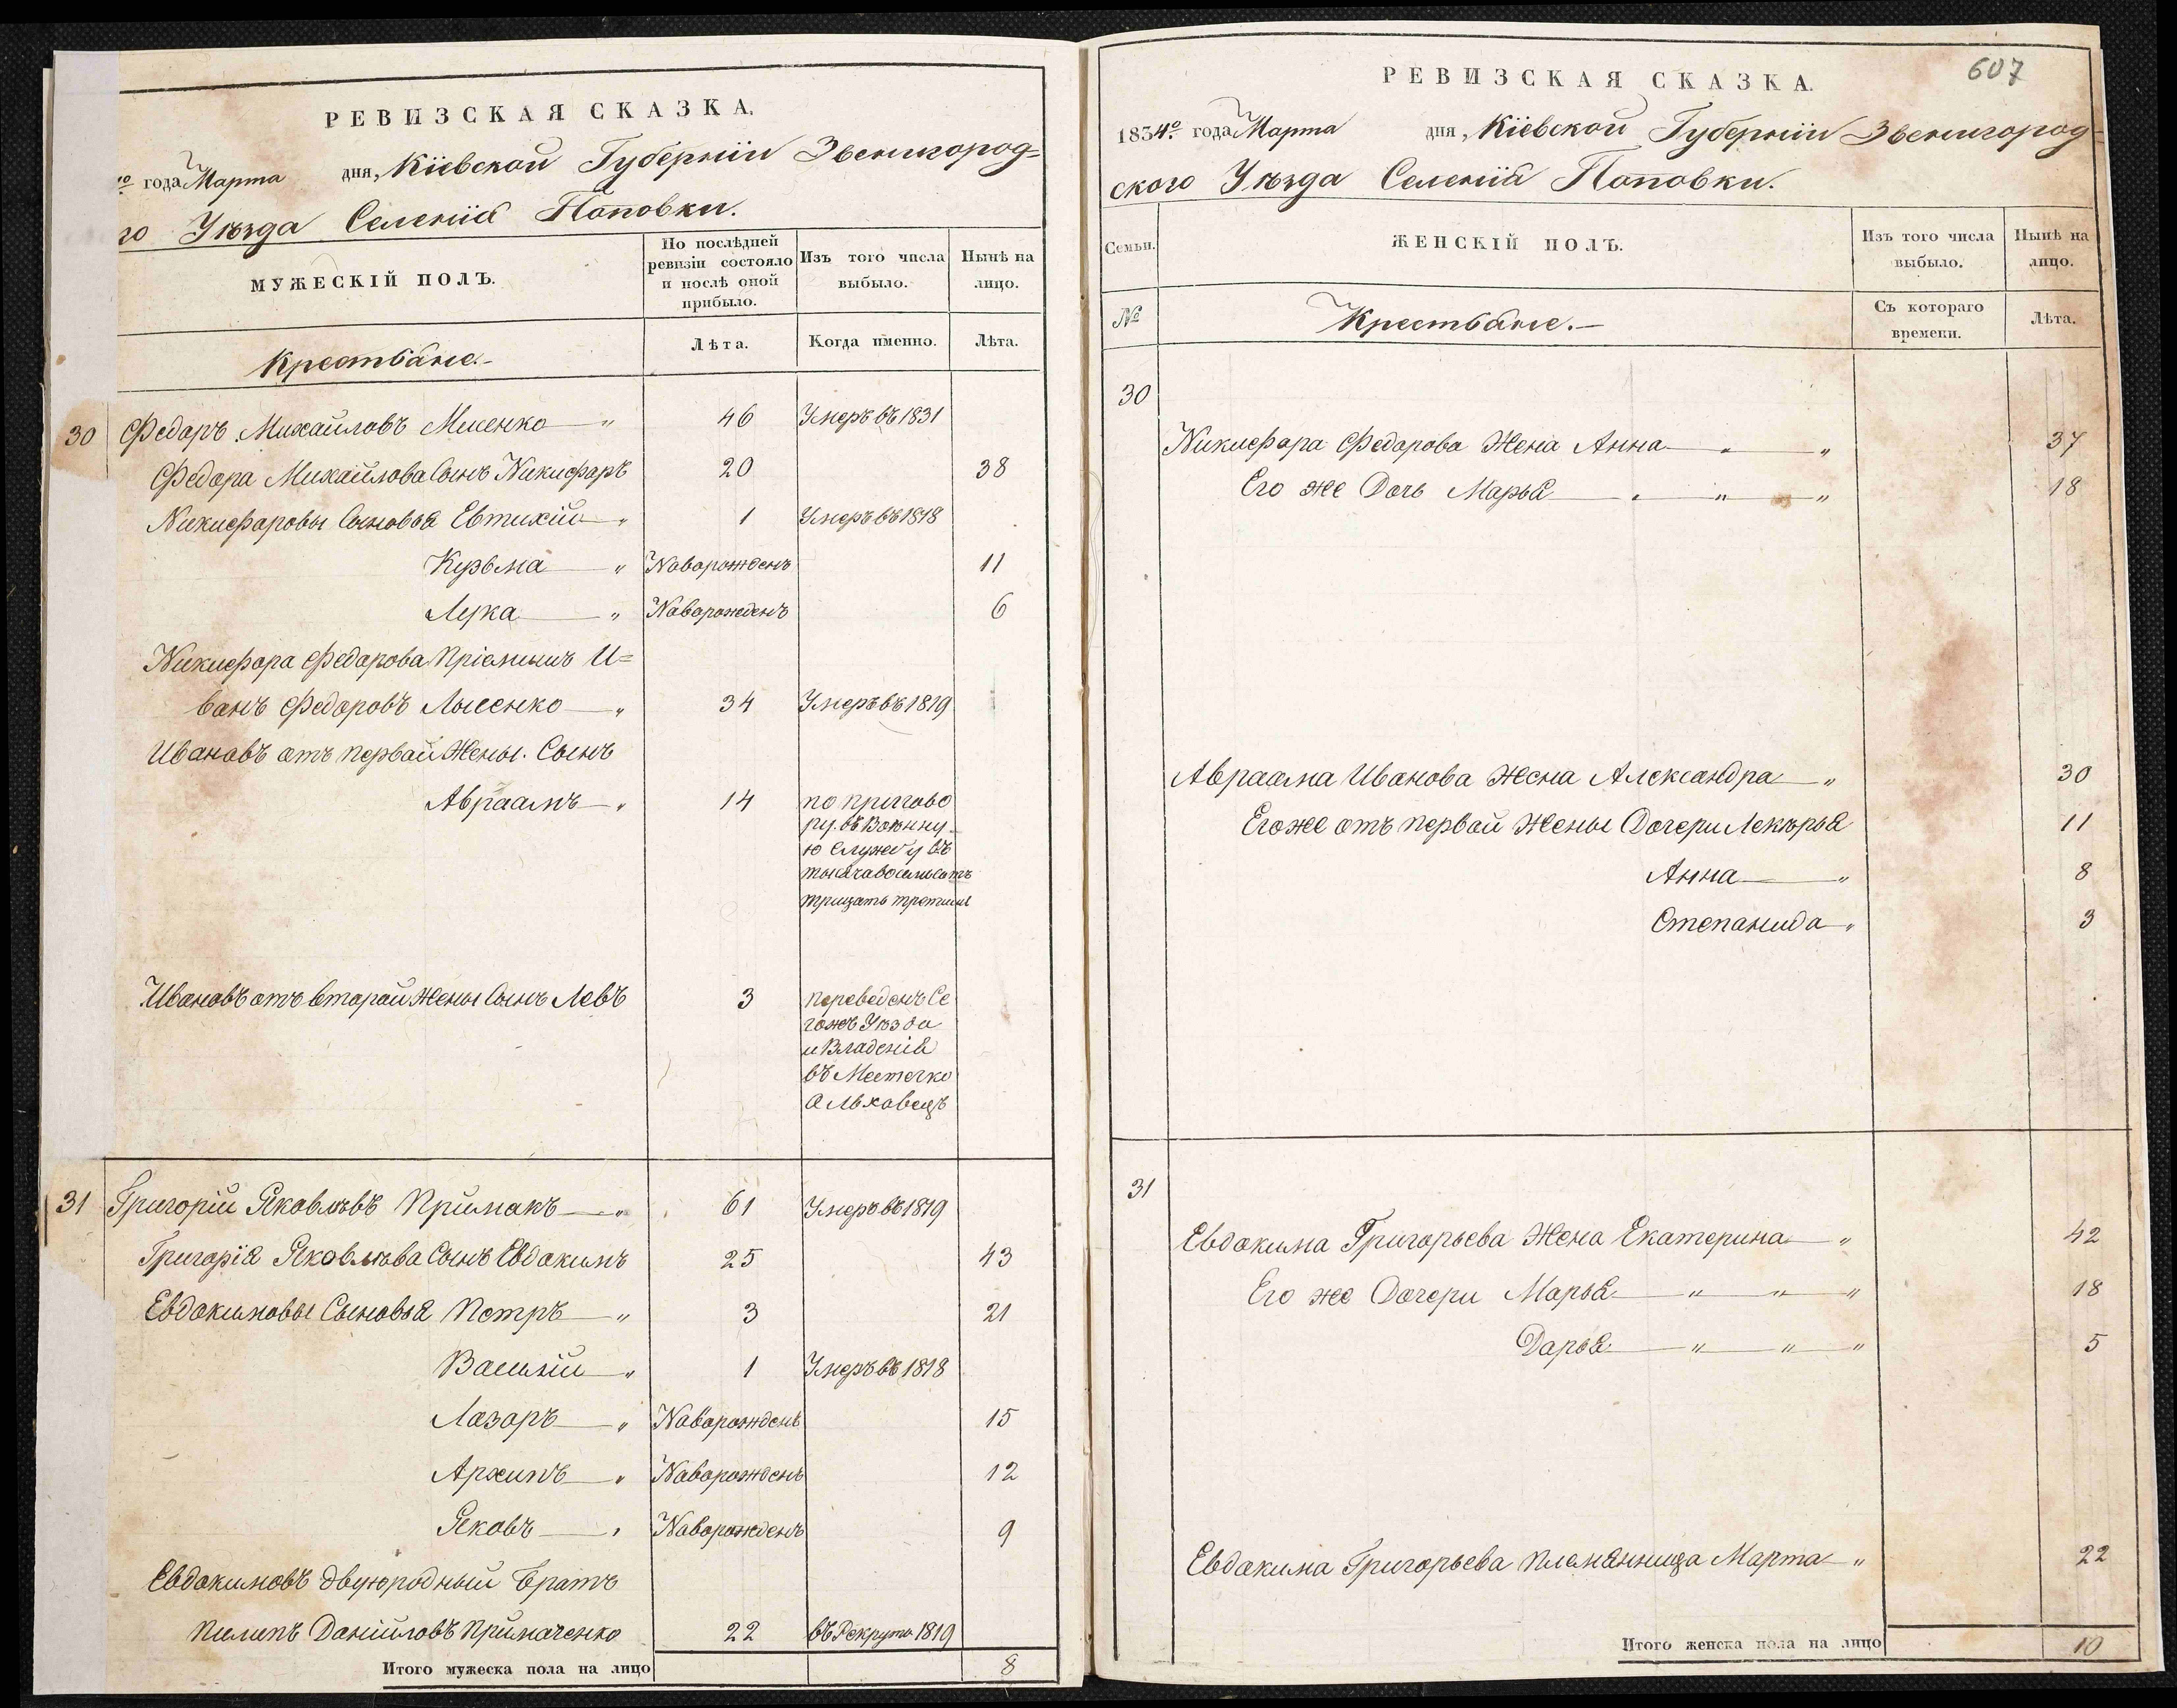 РЕВИЗСКАЯ СКАЗКА.
го года Марта дня, Кіевской Губерніи Звенигород=
го Уѣзда Селенія Поповки.
МУЖЕСКІЙ ПОЛЪ.
По послѣдней ревизіи состояло и послѣ оной прибыло.
Изъ того числа выбыло.
Нынѣ на лицо.
Крестьяне.
Лѣта.
Когда именно.
Лѣта.
30 Федоръ Михайловъ Мисенко " 46 Умеръ въ 1831
Федора Михайлова Сынъ Никифоръ 20 38
Никифоровы Сыновья Евтихій " 1 Умеръ въ 1818
Курьма " Новорожденъ 11
Лука " Новорожденъ 6
Никифора Федорова Пріемышъ И=
ванъ Федоровъ Лысенко " 34 Умеръ въ 1819
Ивановъ отъ первой Жены Сынъ
Авраамъ " 14 по пригово
ру въ Воинну
ю Службу въ
тысячавосемьсотъ
трицать третьим
Ивановъ отъ второй жены Сынъ Левъ 3 переведенъ Се
гожъ Уѣзда
и Владенія
въ Местечко
Ольховецъ
31 Григорій Яковлѣвъ Примакъ " 61 Умеръ въ 1819
Григорія Яковлѣва Сынъ Евдокимъ 25 43
Евдокимовы Сыновья Петръ " 3 21
Василій " 1 Умеръ въ 1818
Лазоръ " Новорожденъ 15
Архипъ " Новорожденъ 12
Яковъ " Новорожденъ 9
Евдокимовъ двуюродный Братъ
Пилипъ Даніиловъ Примаченко 22 въ Рекруты 1819
Итого мужеска пола на лицо 8
607
РЕВИЗСКАЯ СКАЗКА.
1834го года Марта дня, Кіевской Губерніи Звенигород=
ского Уѣзда Селенія Поповки.
Семьи.
ЖЕНСКІЙ ПОЛЪ.
Изъ того числа выбыло.
Нынѣ на лицо.
№
Крестьяне.
Съ котораго времени.
Лѣта.
30
Никифора Федорова Жена Анна " " 37
Его же Дочь Марья " " " 18
Авраама Иванова Жена Александра " 30
Егоже отъ первой Жены Дочери Лекѣрья 11
Анна " 8
Степанида " 3
31
Евдокима Григорьева Жена Екатерина " 42
Его же Дочери Марья " " " 18
Дарья " " " 5
Евдокима Григорьева племянница Марта " 22
Итого женска пола на лицо 10